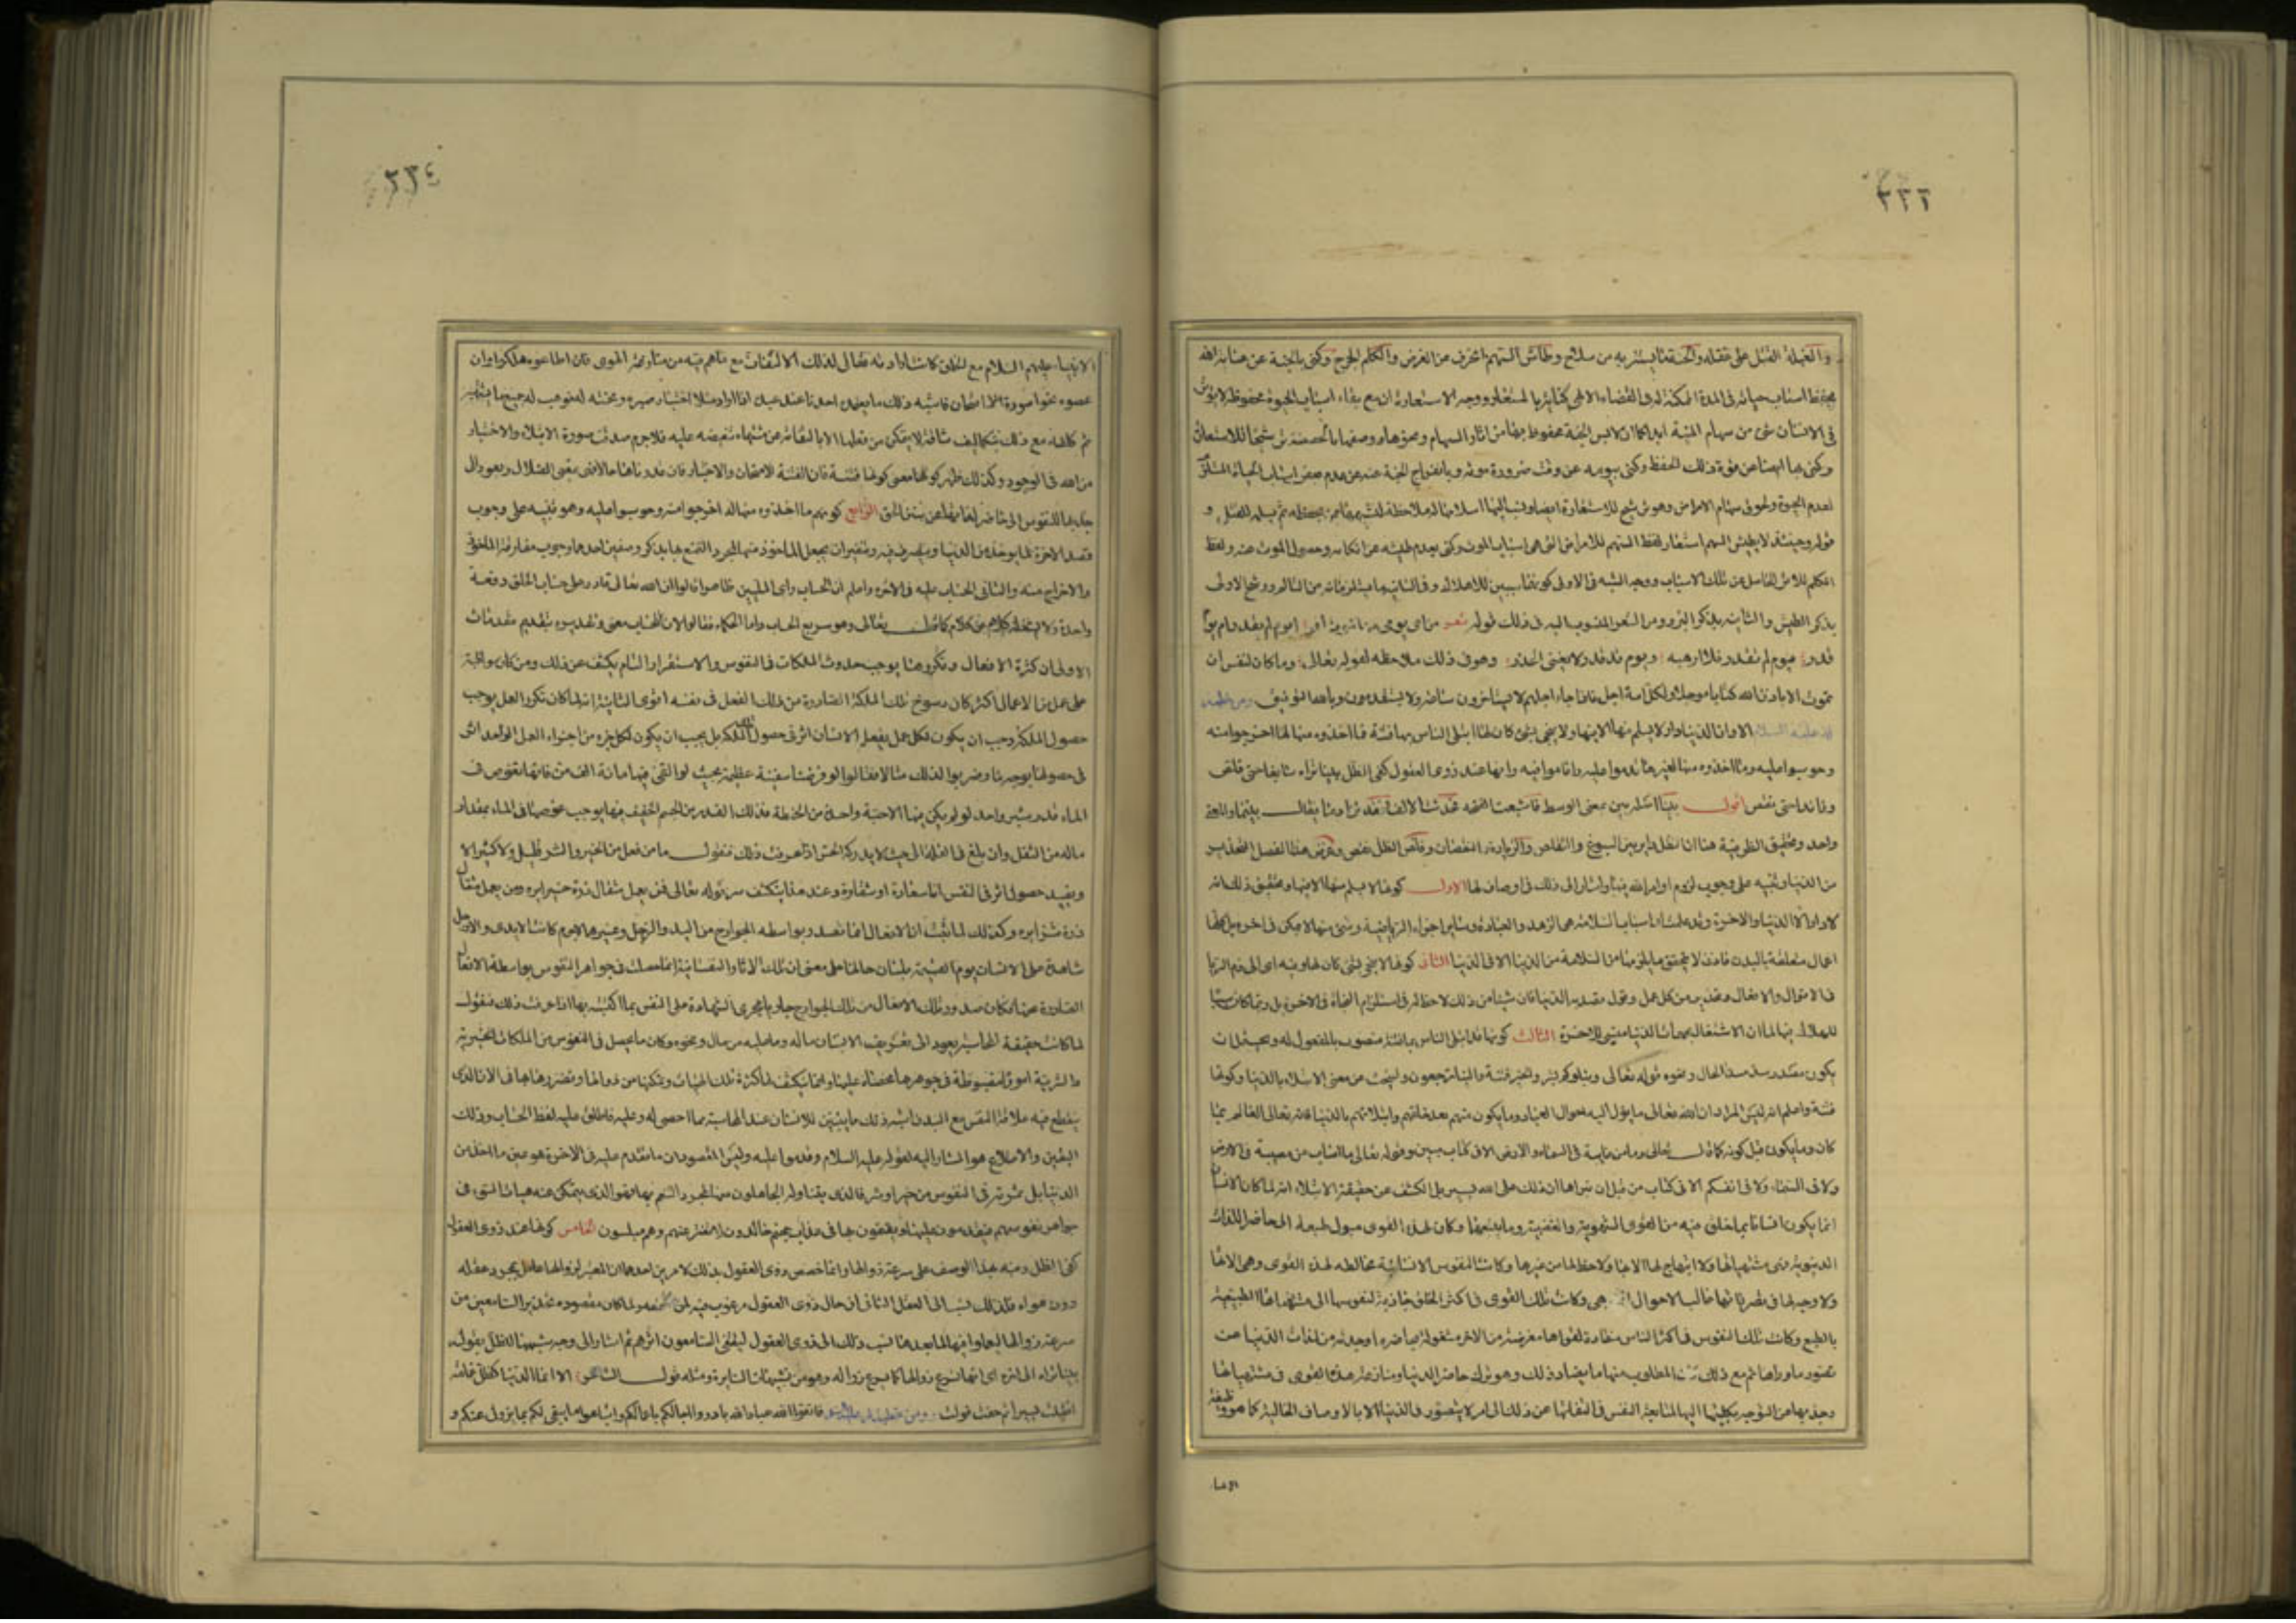 ٢٢٦
والغيلة القتل على غفلة والجنة ما يستتر به من سلاح وطاش السهم انحرف عن الغرض والكلم الجرح وكنى بالجنة عن عناية الله
بحفظ اسباب حياته فى المدة الممكنة له فى القضاء الالهى كناية بالمستعار ووجه الاستعارة ان مع بقاء اسباب الحيوة محفوظة لا يؤثر
فى الانسان شئ من سهام المنية ابدا كما ان لابس الجنة محفوظ بها من اثار السهام
وكنى بها ايضا عن قوة ذلك الحفظ وكنى بيومه عن وقت ضرورة موته وبانفراج الجنة عنه عن عدم بعض اسباب الحياة المستلزم
لعدم الحيوة ولحوق سهام الامراض وهو ترشيح للاستعارة ايضا
قوله وحينئذ لا يطيش السهم استعار لفظ السهم للامراض التى هى اسباب الموت وكنى بعدم طيشه عن انكائه وحصول الموت عنه ولفظ
الكلم للاثر الحاصل عن تلك الاسباب ووجه الشبه فى الاولى كونها سببين للاهلاك وفى الثانية ما يستلزمانه من التالم ورشح الاولى
بذكر الطيش والثانية بذكر البرء ومن الشعر المنسوب اليه فى ذلك قوله شعر من اى يومى من الموت افر ايوم لم يقدر ام يوم
قدر فيوم لم يقدر فلا ارهبه ويوم قد قدر لا يغنى الحذر وهو فى ذلك ملاحظ لقوله تعالى وما كان لنفس ان
تموت الا باذن الله كتابا مؤجلا ولكل امة اجل فاذا جاء اجلهم لا يستاخرون ساعة ولا يستقدمون وبالله التوفيق ومن خطبة
له عليه السلام الا وان الدنيا دار لا يسلم منها الا فيها ولا ينجى بشئ كان لها ابتلى الناس بها فتنة فما اخذوه منها لها اخرجوا منه
وحوسبوا عليه وما اخذوه منها لغيرها قدموا عليه واقاموا فيه وانها عند ذوى العقول كفئ الظل بينا تراه سابغا حتى قلص
وزائدا حتى نقص اقول بينا اصله بين بمعنى الوسط فاشبعت الفتحة فحدثت الالف فقد تزاد ما فيقال بينما والمعنى
واحد وتحقيق الظرفية هنا ان الظل دائر بين السبوغ والتقلص والزيادة والنقصان وقلص الظل نقص وغرض هذا الفصل التحذير
من الدنيا والتنبيه على وجوب لزوم اوامر الله فيها واشار الى ذلك فى اوصاف لها الاول كونها لا يسلم منها الا فيها وتحقيق ذلك انه
لا دار الا الدنيا والاخرة وقد علمت ان اسباب السلامة هى الزهد والعبادة وسائر اجزاء الرياضة وشئ منها لا يمكن فى الاخرة بل كلها
اعمال متعلقة بالبدن فاذن لا يتحقق ما يلزمها من السلامة من الدنيا الا فى الدنيا الثانى كونها لا ينجى بشئ كان لها وفيه ايماء الى ذم الريا
فى الاقوال والافعال وتحذير من كل عمل وقول مقصد به الدنيا فان شيئا من ذلك لاحظ له فى استلزام النجاة فى الاخرة بل ربما كان سببا
للهلاك فيها لما ان الاشتغال بمهمات الدنيا منس للاخرة الثالث كونها قد ابتلى الناس بها فتنة منصوب بالمفعول له ويحتمل ان
يكون مصدرا سد مسد الحال ونحوه قوله تعالى ونبلوكم بالشر والخير فتنة والينا ترجعون ولنبحث عن معنى الابتلاء بالدنيا وكونها
فتنة واعلم انه ليس المراد ان الله تعالى ما يؤول اليه احوال العباد وما يكون منهم بعد خلقهم وابتلائهم بالدنيا فانه تعالى العالم بما
كان وما يكون قبل كونه كما قال تعالى وما من غائبة فى السماء والارض الا فى كتاب مبين وقوله تعالى ما اصاب من مصيبة فى الارض
ولا فى انفسكم الا فى كتاب من قبل ان نبراها ان ذلك على الله يسير بل الكشف عن حقيقة الابتلاء انه لما كان الانسان
انما يكون انسانا بما خلق فيه من القوى الشهوية والغضبية وما يتبعهما وكان لهذه القوى ميول طبيعية الى حاضر اللذات
الدنيوية فهى مشتهياتها ولا ابتهاج لها الا بها ولا حظ لها من غيرها وكانت النفوس الانسانية مخالطة لهذه القوى وهى الاتها
ولا وجود لها فى تصرفاتها غالب الاحوال الا هى وكانت تلك القوى فى اكثر الخلق جاذبة لنفوسها الى مشتهياتها الطبيعية
بالطبع وكانت تلك النفوس فى اكثر الناس منقادة لقواها معرضة عن الاخرة مشغولة بحاضر ما وجدته من لذات الدنيا عن
تصور ما وراءها ثم مع ذلك كان المطلوب منها ما يضاد ذلك وهو ترك حاضر الدنيا ومنازعة هذه القوى فى مشتهياتها
وجذبها عن التوجه بكليتها اليها لمتابعة النفس فى التفاتها عن ذلك الى امر لا يتصور فى الدنيا الا بالاوصاف الخالية كما هو وظيفة
الانبيا
٢٢٤
الانبياء عليهم السلام مع الخلق كانت ارادته تعالى لذلك الالتفات مع ما هم فيه من منازعة الهوى فان اطاعوه هلكوا وان
عصوه نجوا صورة امتحان فاشبه ذلك ما يعتمده احدنا عند عبده اذا اراد مثلا اختبار صبره ومحبته له فوهب له جميع ما يشتهيه
ثم كلفه مع ذلك بتكاليف شاقة لا يتمكن من فعلها الا بالتفاته عن مشتهاه وتنغيصه عليه فلا جرم صدقت صورة الابتلاء والاختبار
من الله فى الوجود وكذلك ظهر كونها معنى كونها فتنة فان الفتنة الامتحان والاختبار
جذبها للنفوس الى حاضر لذاتها عن سنن الحق الرابع كونهم ما اخذوه منها لها اخرجوا منه وحوسبوا عليه وهو تنبيه على وجوب
قصد الاخرة بما يؤخذ من الدنيا ويتصرف فيه وتنفير ان يجعل الماخوذ منها لمجرد التمتع بها بذكر وصفين احدهما وجوب مفارقة الماخوذ
والاخراج منه والثانى الحساب عليه فى الاخرة واعلم ان الحساب على راى المليين ظاهر وقالوا ان الله تعالى قادر على حساب الخلق دفعة
واحدة ولا يشغله كلام عن كلام كما قال تعالى وهو سريع الحساب واما الحكماء فقالوا ان للحساب معنى وتقديره بتقديم مقدمات
الاولى ان كثرة الافعال وتكررها يوجب حدوث الملكات فى النفوس والاستقراء التام يكشف عن ذلك ومن كان مواظبته
على عمل من الاعمال اكثر كان رسوخ تلك الملكة الصادرة من ذلك الفعل فى نفسه اقوى الثانية انه لما كان تكرر العمل يوجب
حصول الملكة وجب ان يكون لكل عمل يفعله الانسان اثر فى حصول تلك الملكة بل يجب ان يكون لكل جزء من اجزاء العمل الواحد اثر
فى حصولها بوجه ما وضربوا لذلك مثالا فقالوا لو فرضنا سفينة عظيمة بحيث لو القى فيها مائة الف من فانها تغوص فى
الماء قدر شبر واحد ولو لم يكن فيها الا حبة واحدة من الحنطة فذلك القدر من الجسم الخفيف فيها يوجب غوصها فى الماء بمقدار
ماله من الثقل وان بلغ فى القلة الى حيث لا يدركه الحس اذا عرفت ذلك فنقول ما من فعل من الخير والشر قليل ولا كثير الا
ويفيد حصول اثر فى النفس اما سعادة او شقاوة وعند هذا ينكشف سر قوله تعالى فمن يعمل مثقال ذرة خيرا يره ومن يعمل مثقال
ذرة شرا يره وكذلك لما ثبت ان الافعال انما تصدر بواسطة الجوارح من اليد والرجل وغيرهما لا جرم كانت الايدى والارجل
شاهدة على الانسان يوم القيمة بلسان حالها على معنى ان تلك الاثار النفسانية انما حصلت فى جواهر النفوس بواسطة الافعال
الصادرة عنها فكان صدور تلك الافعال من تلك الجوارح جاريا مجرى الشهادة على النفس بما اكتسبته بها اذا عرفت ذلك فنقول
لما كانت حقيقة المحاسبة يعود الى تعريف الانسان ماله وما عليه من مال ونحوه وكان ما يحصل فى النفوس من الملكات الخيرية
والشرية امورا مضبوطة فى جوهرها محصاة عليها وانما ينكشف لها كثرة تلك الهيئات وتمكنها من ذواتها وتضررها بها فى الان الذى
ينقطع فيه علاقة النفس مع البدن اشبه ذلك ما يتبين للانسان عند المحاسبة مما احصى له وعليه فاطلق عليه لفظ الحساب وذلك
اليقين والاطلاع هو المشار اليه بقوله عليه السلام وقدموا عليه وليس المقصود ان ما يقدم عليه فى الاخرة هو عين ما اخذ من
الدنيا بل ثمرته فى النفوس من خير او شر فالذى يتناوله الجاهلون منها لمجرد التنعم بها فهو الذى يتمكن عنه هيئات السوء فى
جواهر نفوسهم فيقدمون عليها ويقيمون بها فى عذاب جهنم خالدون لا يفتر عنهم وهم فيه مبلسون الخامس كونها عند ذوى العقول
كفئ الظل ونبه بهذا الوصف على سرعة زوالها وانما خصص ذوى العقول بذلك لامرين احدهما ان المعبر لزوالها عامل بمجرد عقله
دون هواه فلذلك نسب الى العقل الثانى ان حال ذوى العقول مرغوب فيه لمن سمعه ولما كان مقصوده تحذير السامعين من
سرعة زوالها ليعملوا فيها لما بعدها نسب ذلك الى ذوى العقول ليقتفى السامعون اثرهم ثم اشار الى وجه شبهها بالظل بقوله
بينا تراه الى اخره اى انها تسرع زوالها كما يسرع زواله وهو من تشبيهات السائرة ومثله قول الشاعر الا انما الدنيا كظل غمامة
اظلت يسيرا ثم خفت فولت ومن خطبة له عليه السلام فاتقوا الله عباد الله بادروا اجالكم باعمالكم وابتاعوا ما يبقى لكم بما يزول عنكم و